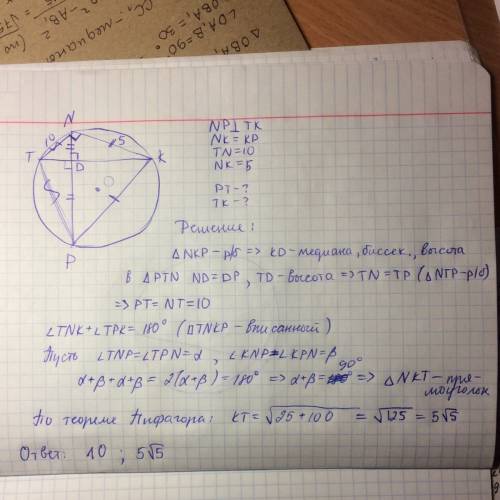 CC₁-медиана
∠OA₁B=90°
∠OBA₁=30°
N
10
5
T
D
K
O
P
NP⊥TK
NK=KP
TN=10
NK=5
PT-?
TK-?
Решение:
△NKP-р/б => KD-медиана, биссек., высота
В △PTN ND=DP, TD-высота => TN=TP (△NTP-р/б)
=> PT=NT=10
∠TNK+∠TPK=180° (□TNKP-вписанный)
Пусть ∠TNP=∠TPN=α, ∠KNP=∠KPN=β
α+β+α+β=2(α+β)=180° => α+β=90° => △NKT-пря-
моуголен
По теореме Пифагора: KT=√25+100 =√125 = 5√5
Ответ: 10 ; 5√5